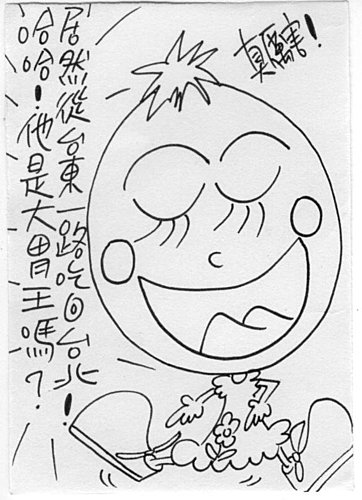 真厲害！
居然從台東一路吃回台北！
哈哈！他是大胃王嗎？